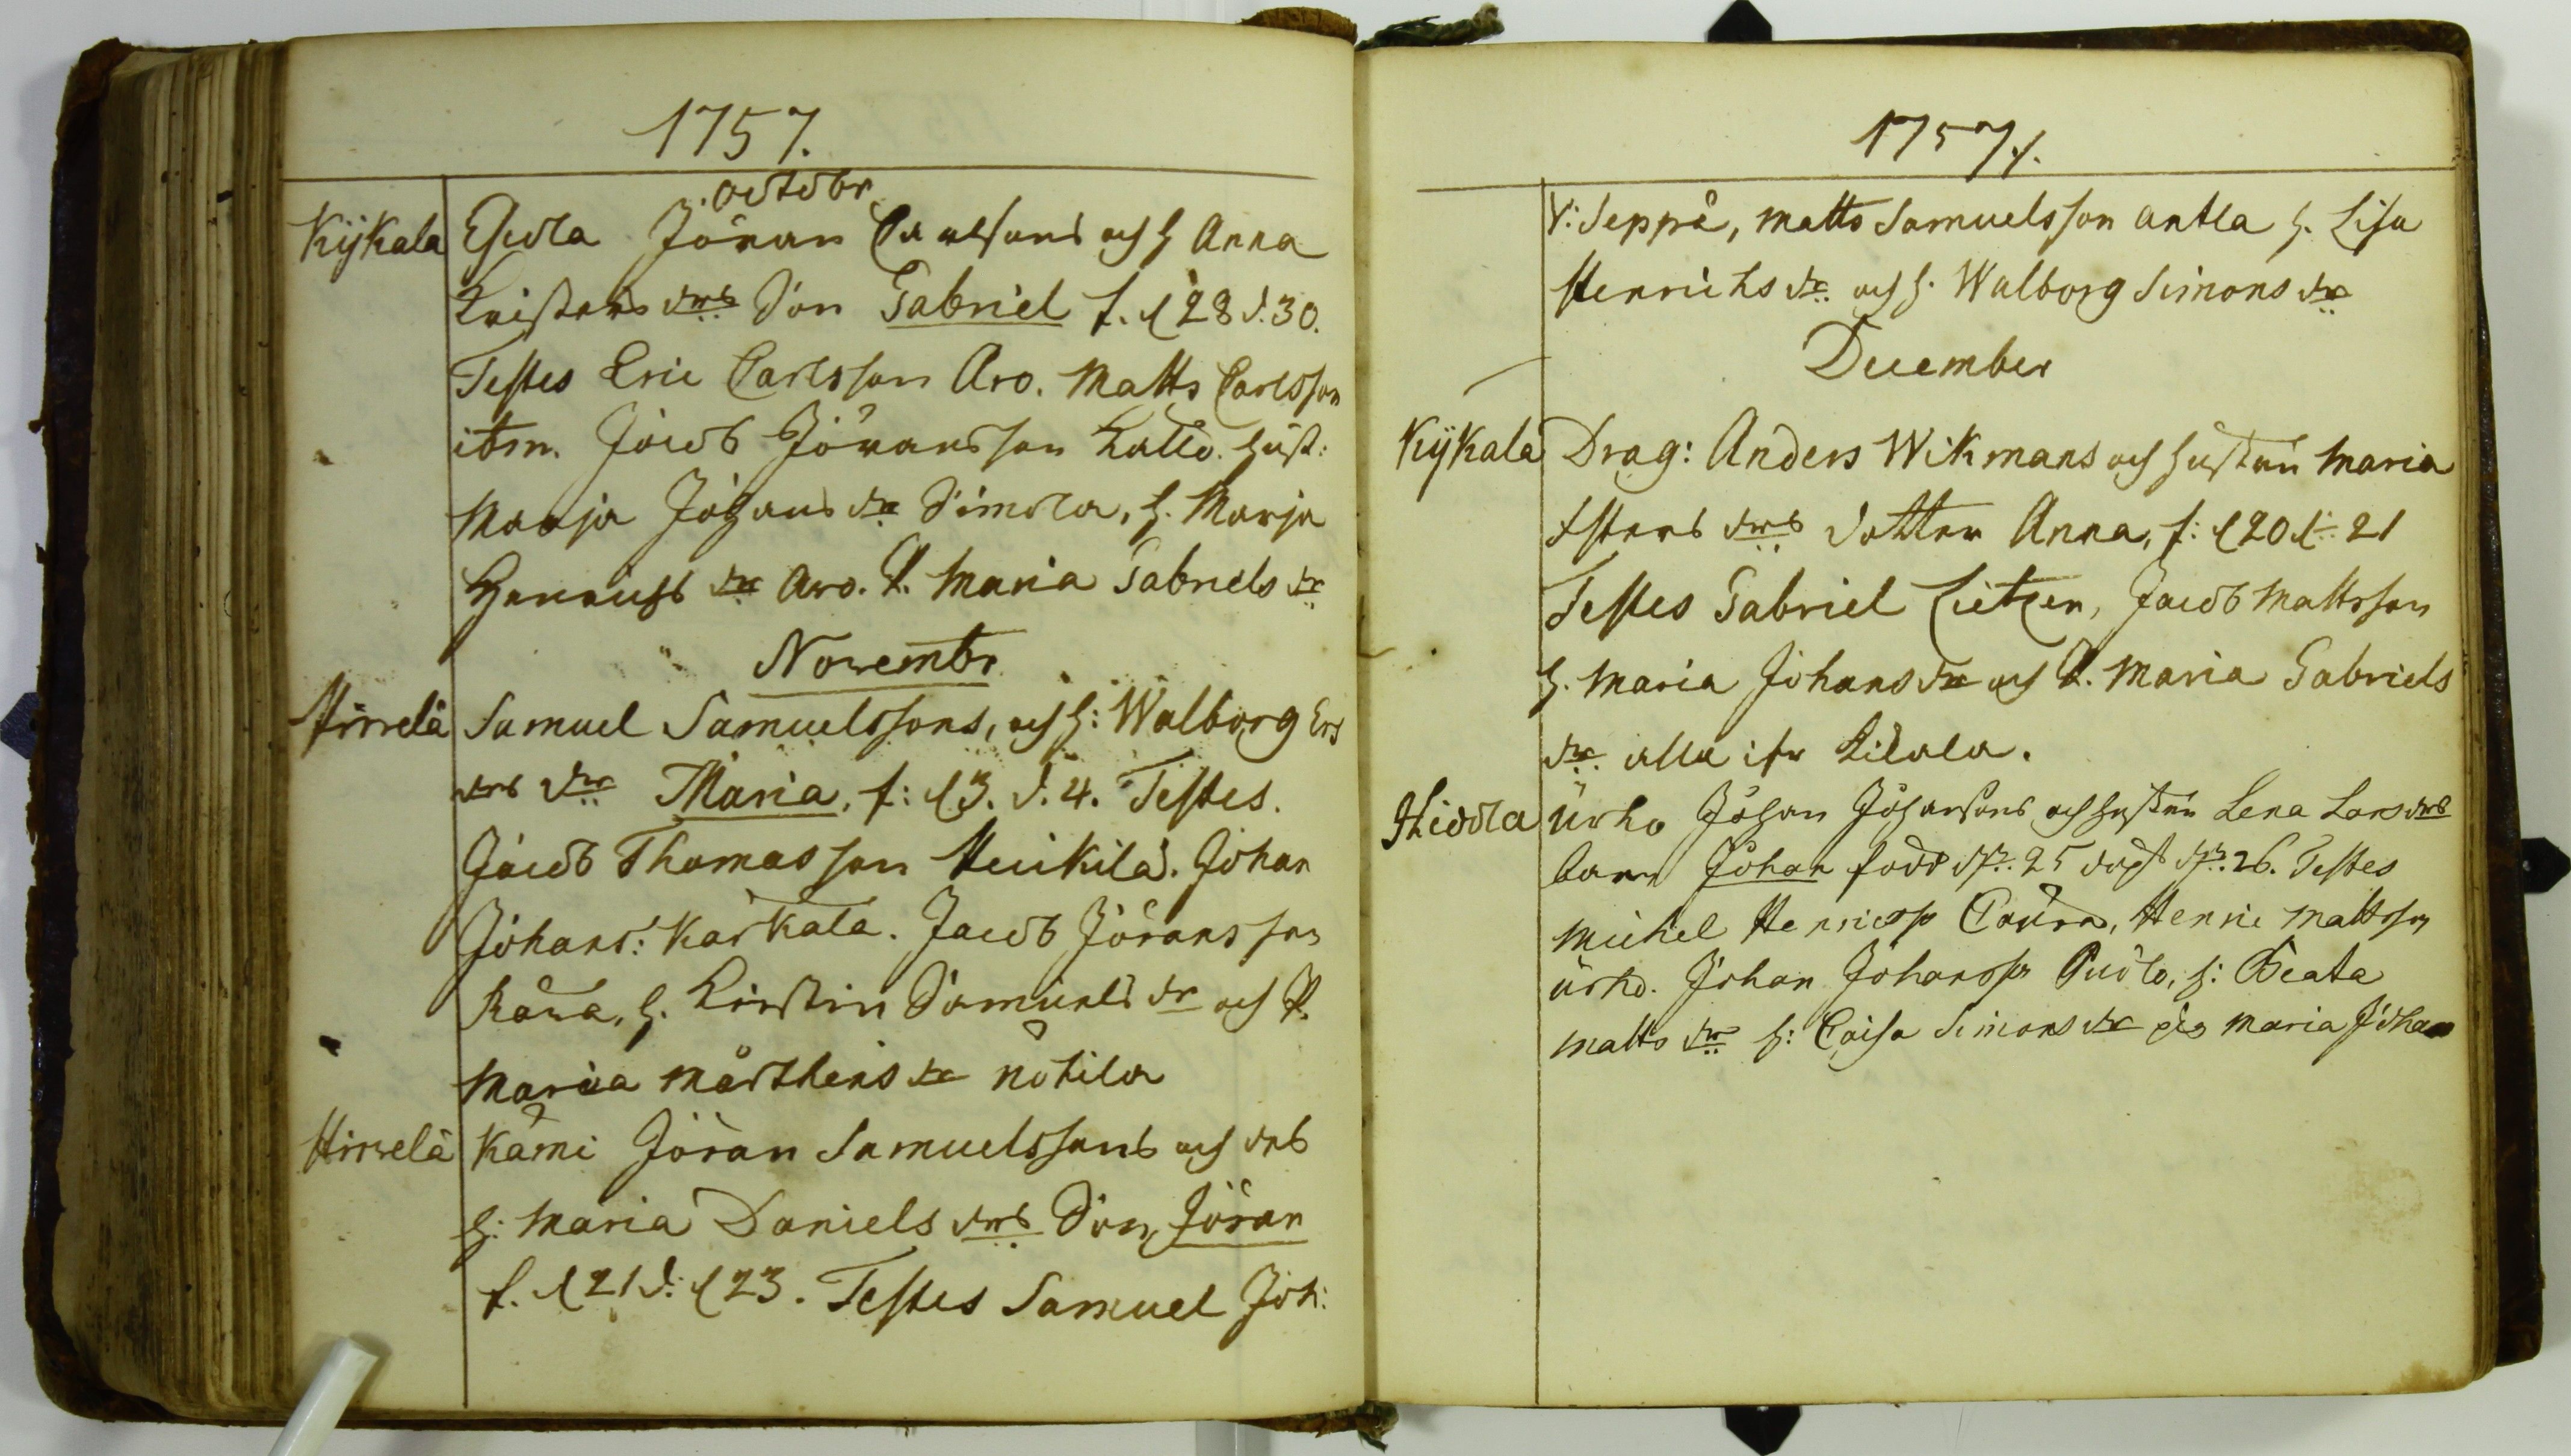 1757.
octobr
Kÿkala Jöran Carlsons och h Anna
Kristers drs Son Gabriel f. d 28 d. 30.
Testes Eric Carlsson Aro. Matts Carlsson
ibm. Jacob Jöransson hust:
Marja Johans dr Simola, h. Marja
Henrichs dr Aro. P. Maria Gabriels dr
Novembr
Hirvelä Samuel Samuelssons, och h: Walborg Ers
drs dr Maria, f: d 3. d. 4. Testes.
Jacob Thomasson Heickilä. Johan
Johans: Karkala. Jacob Jöransson
h. Kirstin Samuels dr och P.
Maria Mårthens dr
Hirvelä Kämi Jöran Samuelssons och ds
h: Maria Daniels drs Son, Jöran
f. d 21 d: d 23. Testes Samuel Joh:
1757./.
V: Seppä, Matts Samuelsson Antla h. Lisa
Henrichs dr och h. Walborg Simons dr
December
Kÿkala Drag: Anders Wikmans och hustru Maria
drs dotter Anna, f: d 20 d: 21
Testes Gabriel Jacob Mattsson
h. Maria Johans dr och P. Maria Gabriels
dr alla
Urho Johan Johansons och hustru Lena Lars drs
barn Johan född d. 25 döpt d. 26. Testes
Michel Henricss Henric Mattsson
Urho. Johan Johanss h: Beata
Matts dr h: Caisa Simons dr pig Maria Johans